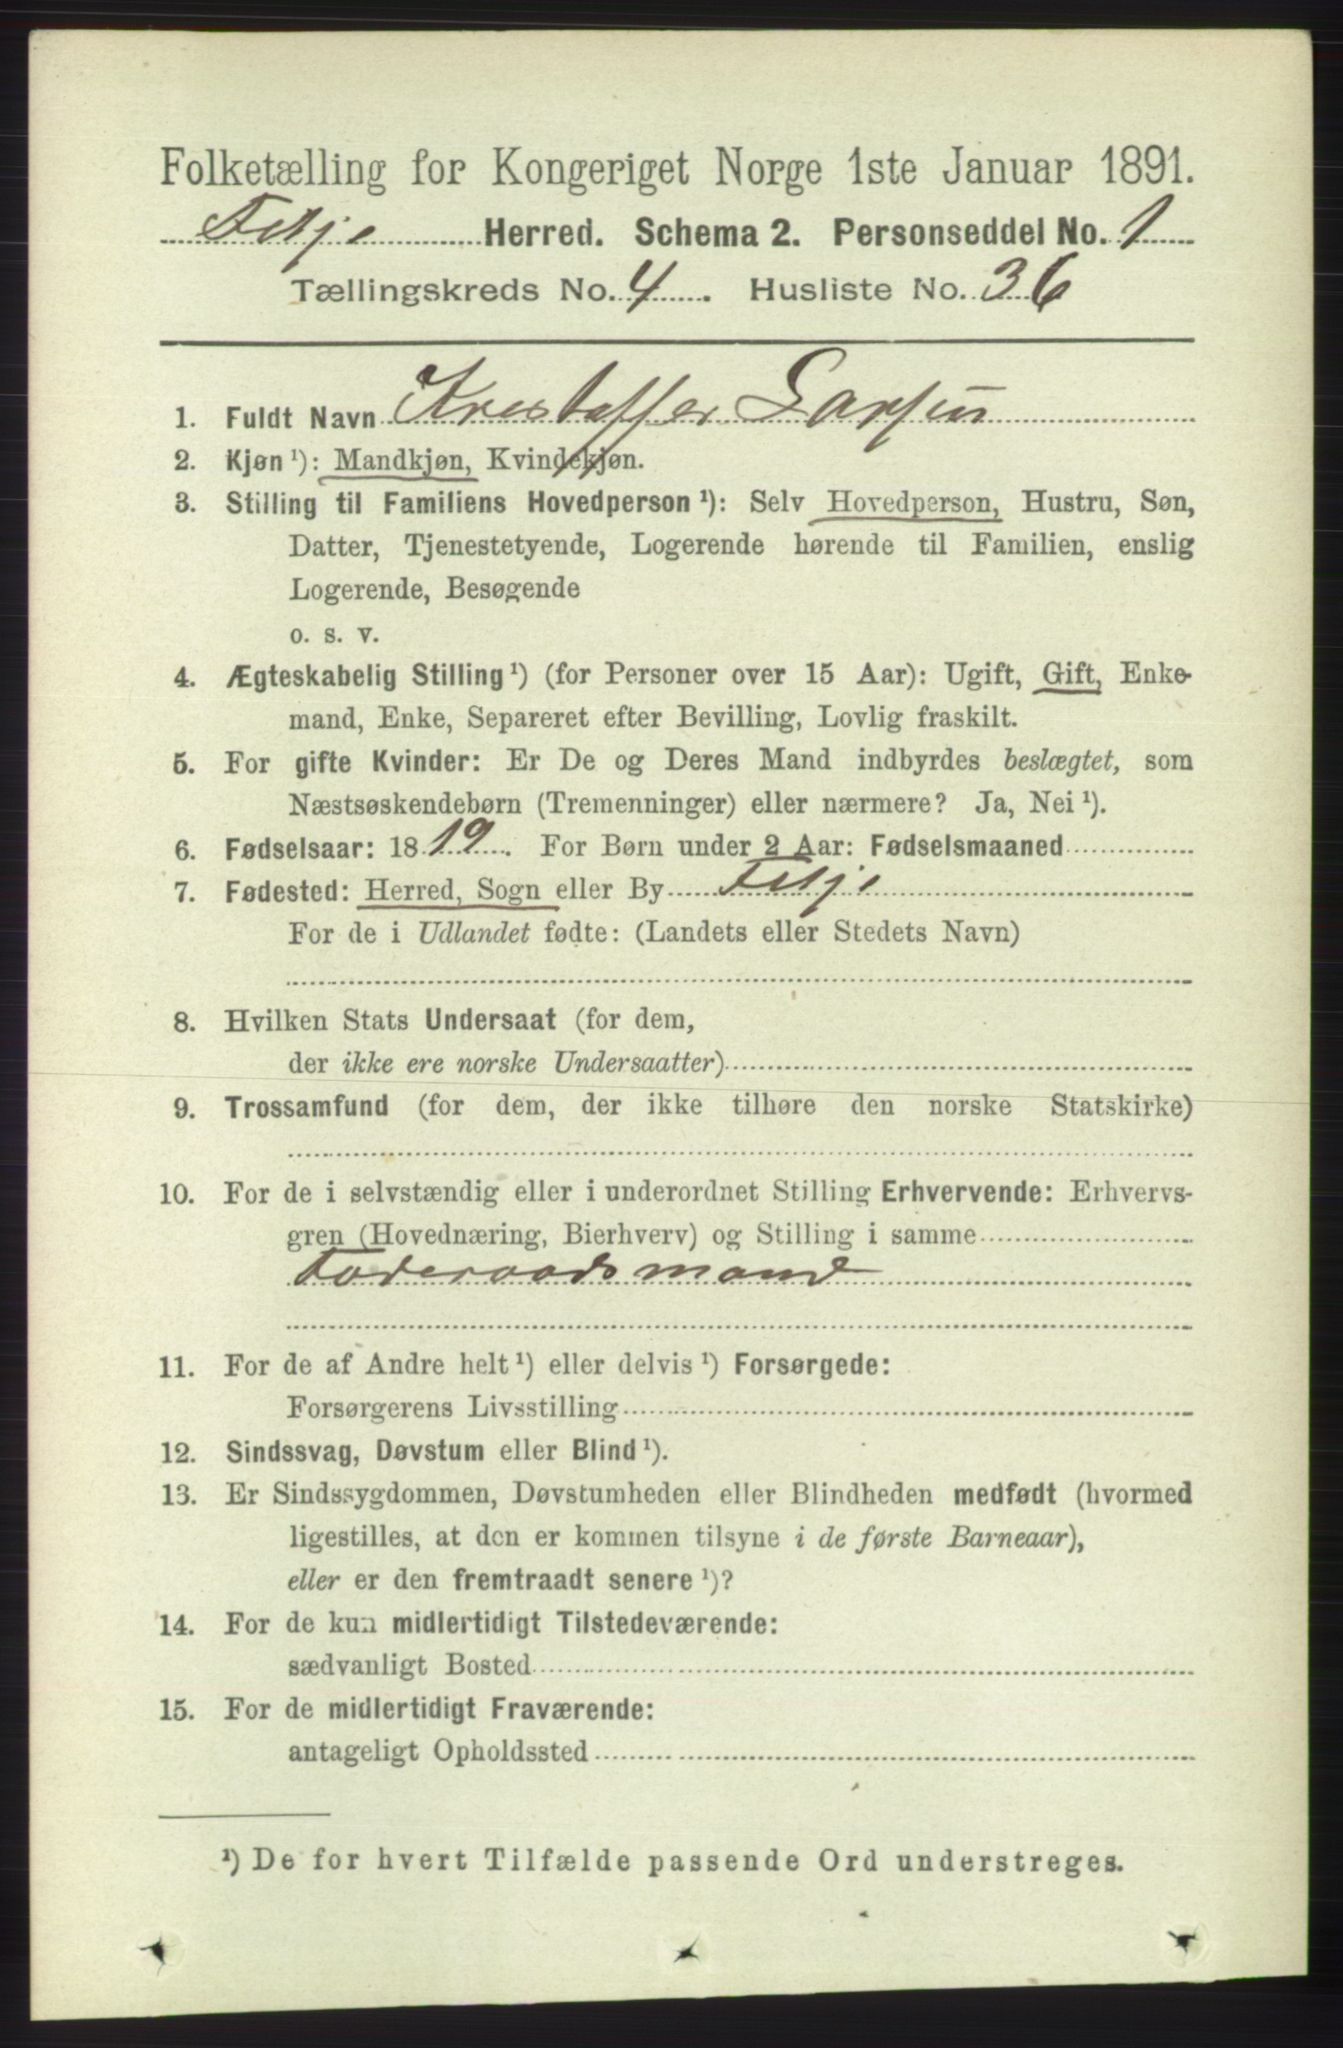 Folketælling for Kongeriget Norge 1ste Januar 1891.
Fitje Herred. Schema 2. Personseddel No. 1
Tællingskreds No. 4. Husliste No. 36
1. Fuldt Navn Krestoffer Larsen
2. Kjøn ¹): Mandkjøn, Kvindekjøn.
3. Stilling til Familiens Hovedperson ¹): Selv Hovedperson, Hustru, Søn,
Datter, Tjenestetyende, Logerende hørende til Familien, enslig
Logerende, Besøgende
o. s. v.
4. Ægteskabelig Stilling ¹) (for Personer over 15 Aar): Ugift, Gift, Enke-
mand, Enke, Separeret efter Bevilling, Lovlig fraskilt.
5. For gifte Kvinder: Er De og Deres Mand indbyrdes beslægtet, som
Næstsøskendebørn (Tremenninger) eller nærmere? Ja, Nei ¹).
6. Fødselsaar: 1819. For Børn under 2 Aar: Fødselsmaaned
7. Fødested: Herred, Sogn eller By Fitje
For de i Udlandet fødte: (Landets eller Stedets Navn)
8. Hvilken Stats Undersaat (for dem,
der ikke ere norske Undersaatter)
9. Trossamfund (for dem, der ikke tilhøre den norske Statskirke)
10. For de i selvstændig eller i underordnet Stilling Erhvervende: Erhvervs-
gren (Hovednæring, Bierhverv) og Stilling i samme
Foderaadsmand
11. For de af Andre helt ¹) eller delvis ¹) Forsørgede:
Forsørgerens Livsstilling
12. Sindssvag, Døvstum eller Blind ¹).
13. Er Sindssygdommen, Døvstumheden eller Blindheden medfødt (hvormed
ligestilles, at den er kommen tilsyne i de første Barneaar),
eller er den fremtraadt senere ¹)?
14. For de kun midlertidigt Tilstedeværende:
sædvanligt Bosted
15. For de midlertidigt Fraværende:
antageligt Opholdssted
¹) De for hvert Tilfælde passende Ord understreges.